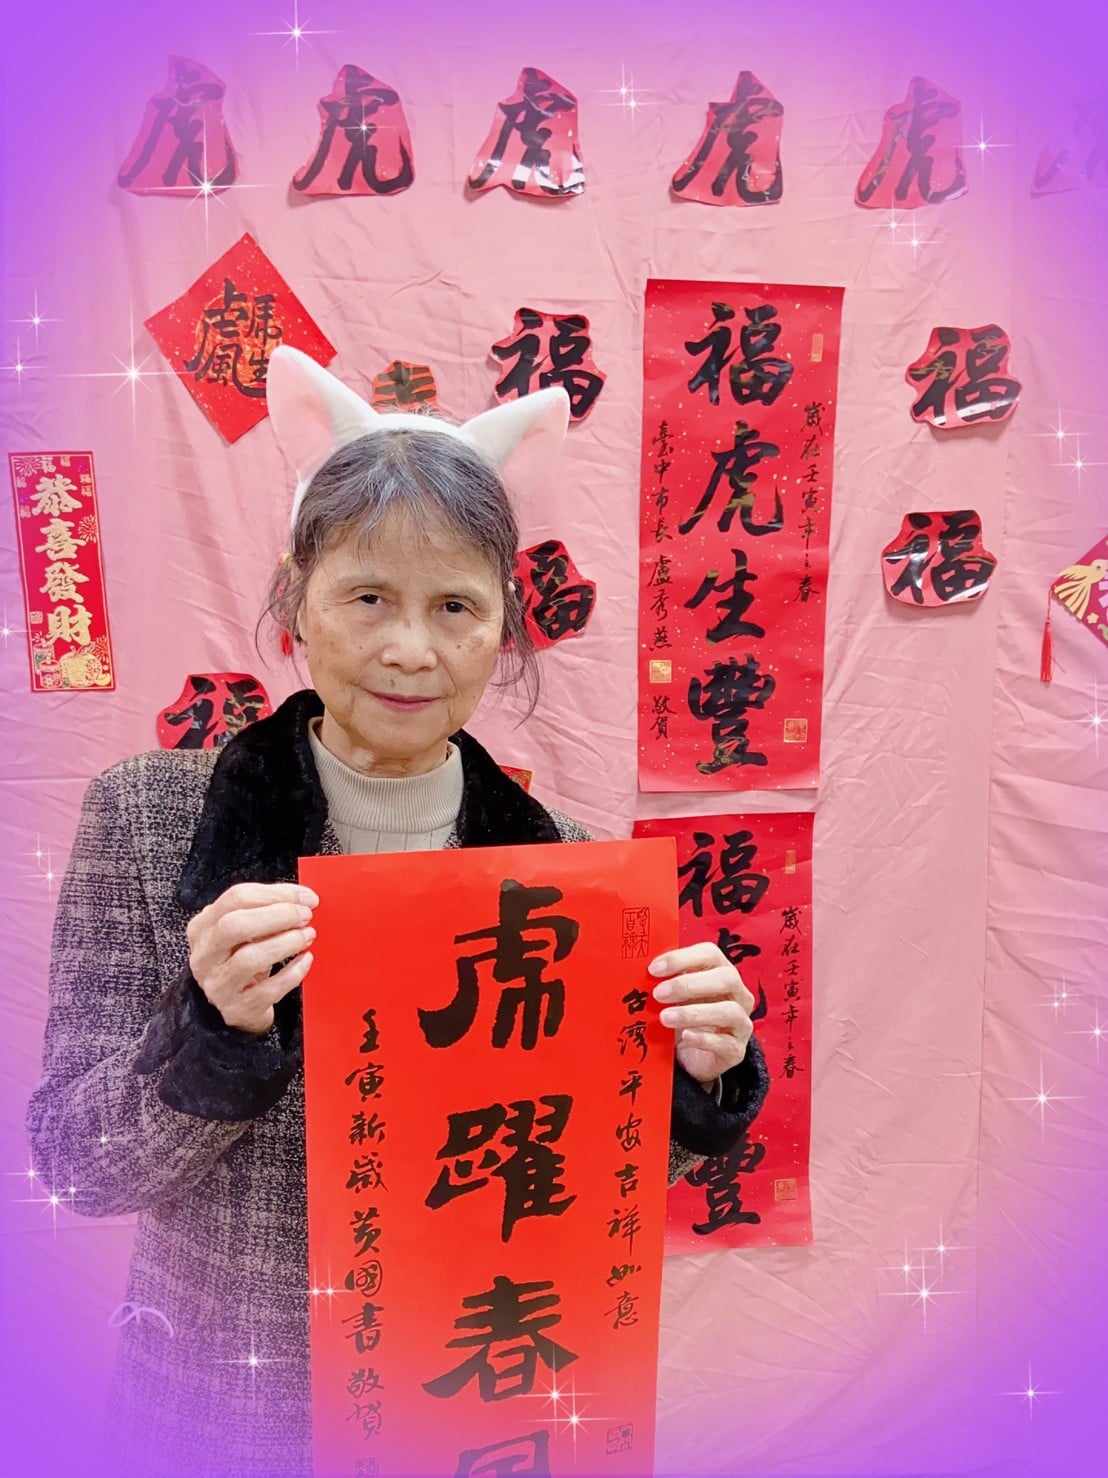 虎
虎
虎
虎
虎
虎
虎風生
恭喜發財
福
福
福
福
福
歲在壬寅年之春
福虎生豐
臺中市長 盧秀燕 敬賀
歲在壬寅年之春
福虎 豐
台灣平安吉祥如意
虎躍春
壬寅新歲 黃國書 敬賀